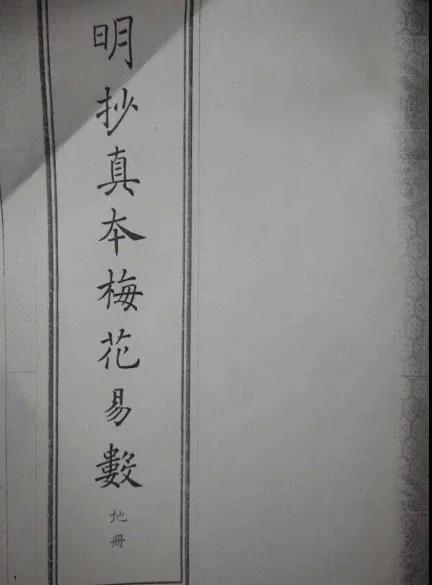 明抄真本梅花易數
地冊
1